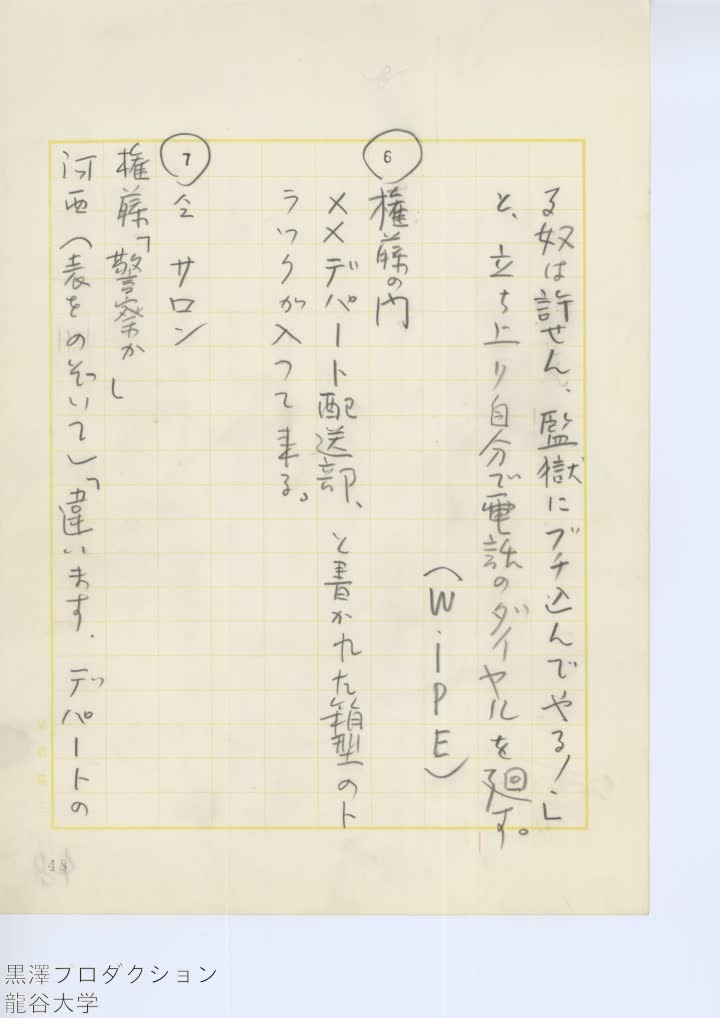 る奴は許せん、監獄にブチ込んでやる！」
と、立ち上り自分で電話のダイヤルを廻す。
（WiPE）
6 権藤の門
××デパート配送部、と書かれた箱型のト
ラックが入って来る。
7 仝 サロン
権藤「警察か」
河西（表をのぞいて）「違います．デパートの
48
黒澤プロダクション
龍谷大学